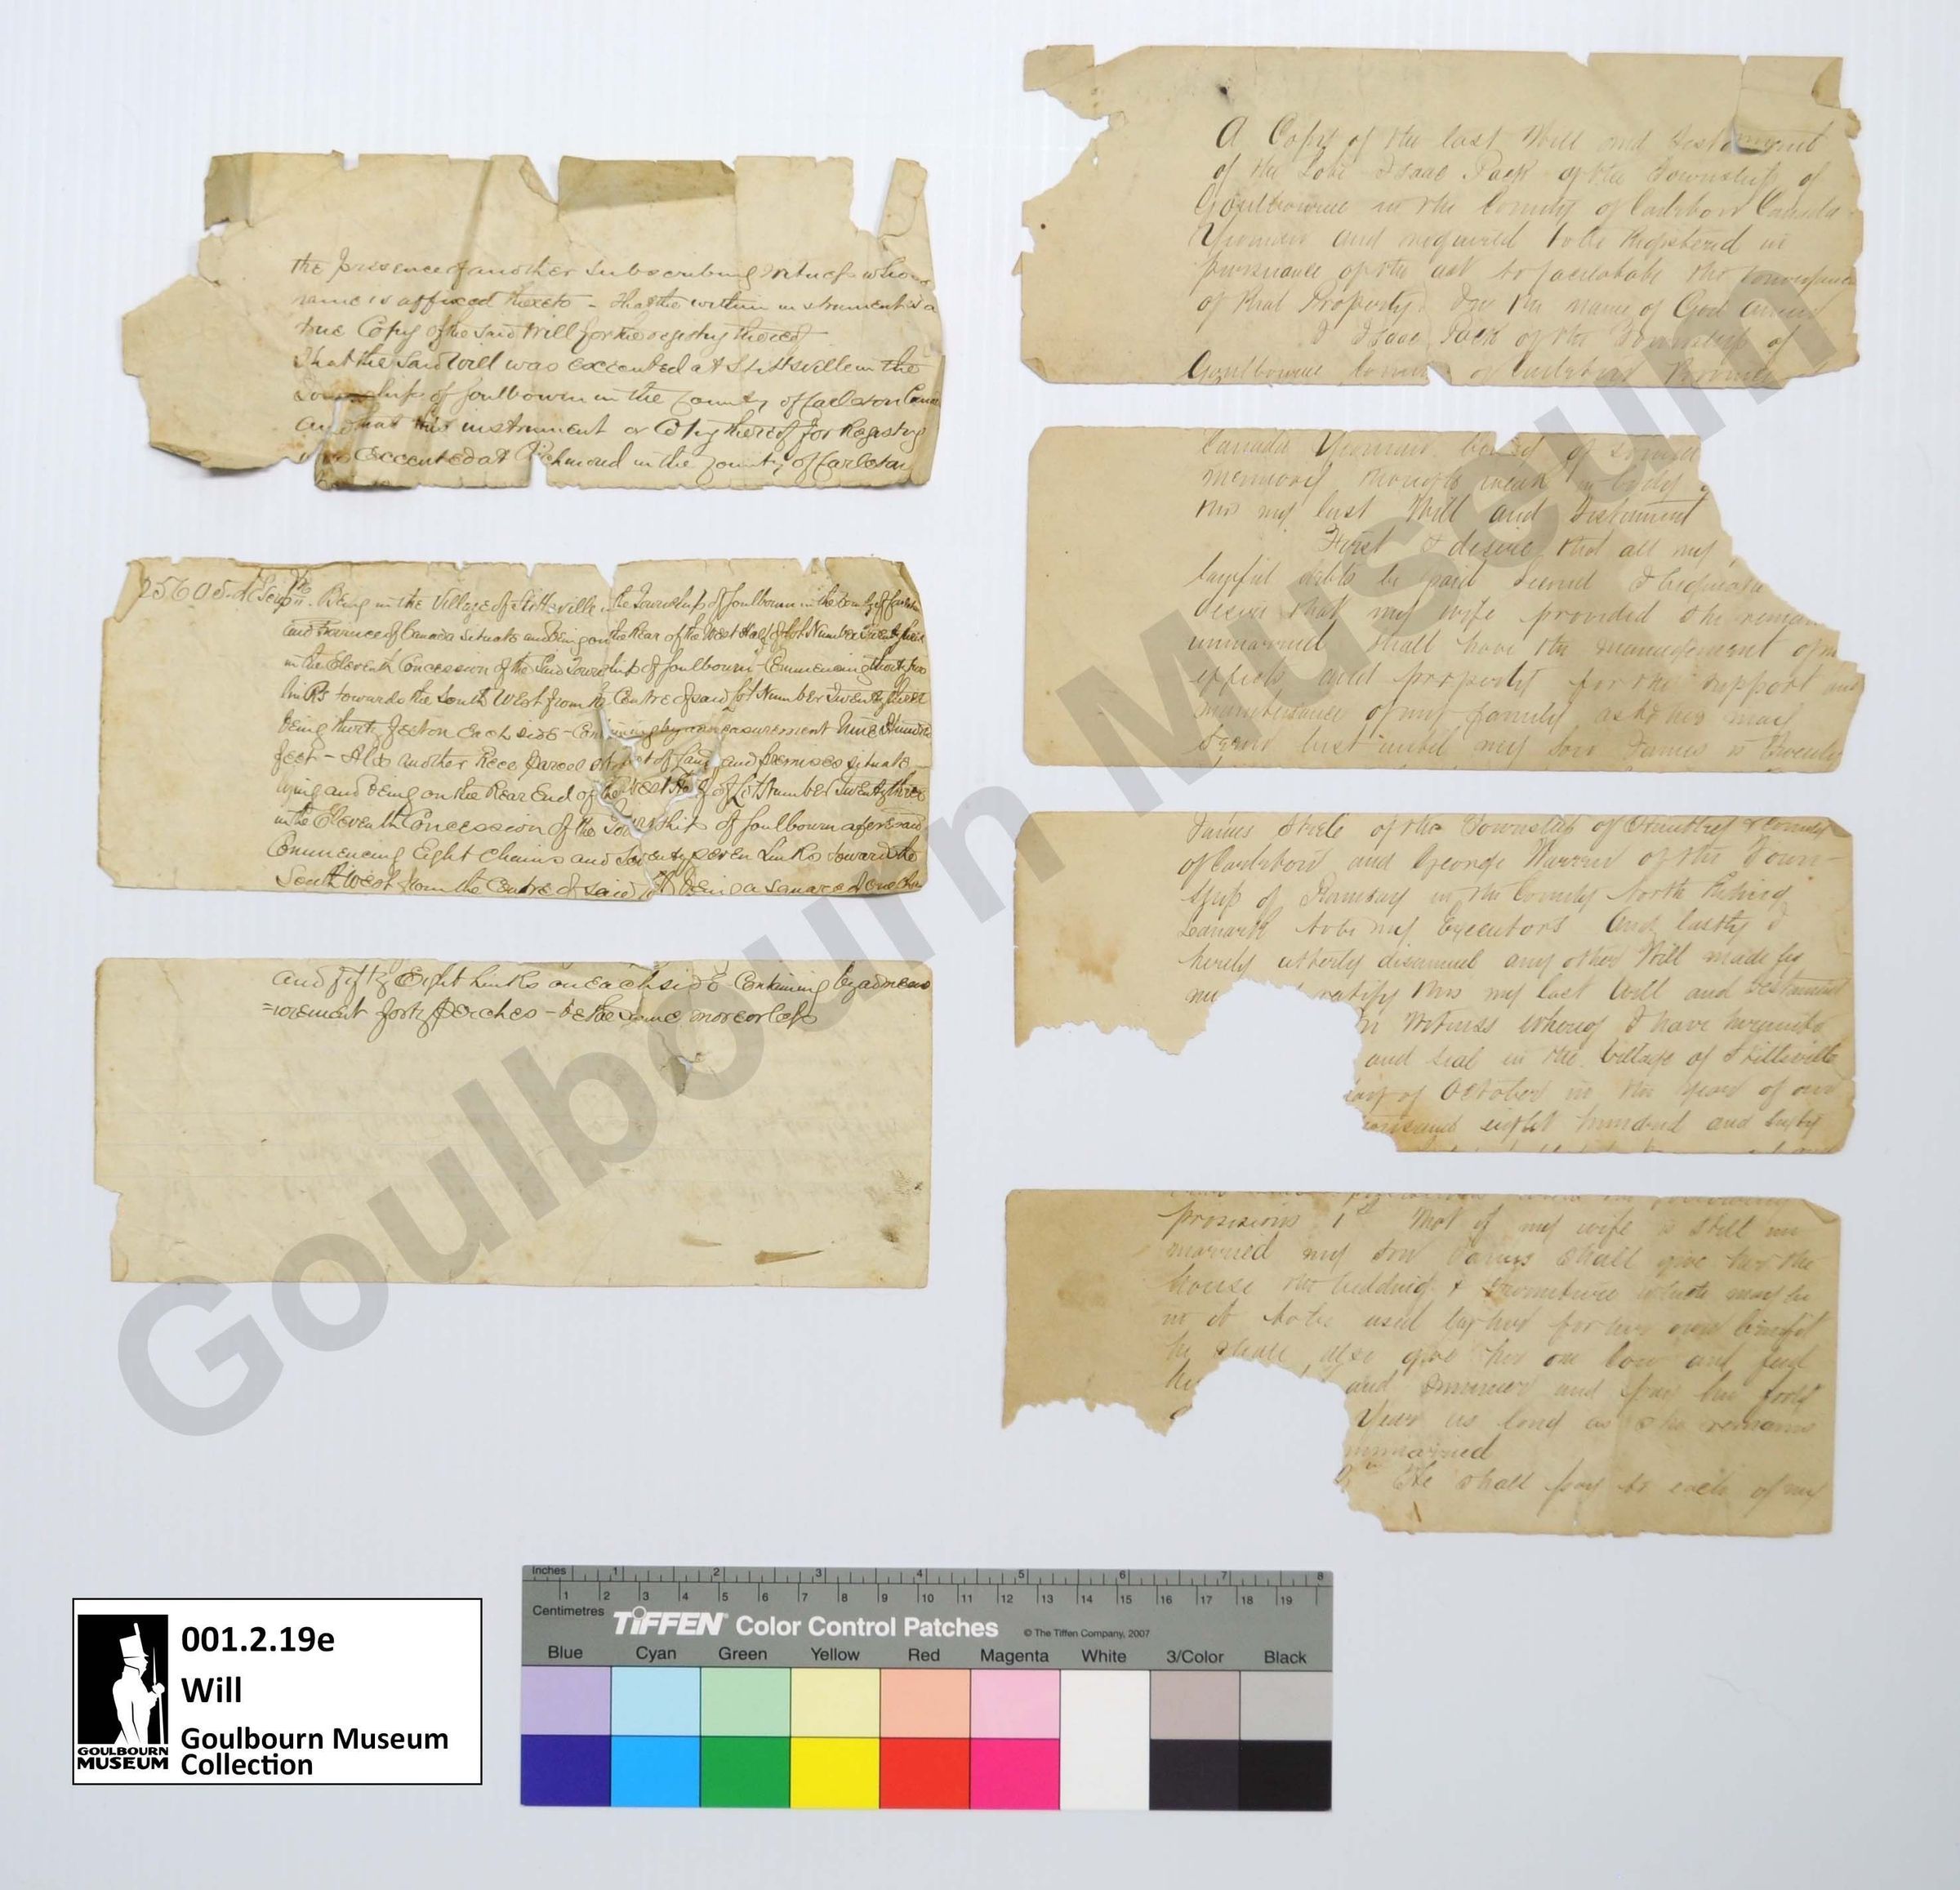 the presence of another subscribing witness whose
name is affixed thereto - that the within instrument is a
true Copy of the said Will for the registry thereof
That the said Will was executed at Stittsville in the
Township of Goulbourn in the County of Carleton
and that this instrument or Copy thereof for Registry
was executed at Richmond in the County of Carleton
Being in the Village of Stittsville in the Township of Goulbourn in the County of Carleton
and Province of Canada situate and being on the Rear of the West Half of Lot Number Twenty three
in the Eleventh Concession of the Said Township of Goulbourn - Commencing
links towards the South West from the Centre of said Lot Number Twenty three
being thirty feet on Each side - Containing by admeasurement Nine Hundred
feet - Also another Piece parcel or tract of Land and premises situate
lying and being on the Rear End of the West Half of Lot Number Twenty three
in the Eleventh Concession of the Township of Goulbourn aforesaid
Commencing Eight Chains and Seventy seven Links toward the
South West from the Centre of said lot being a square of one Chain
and fifty Eight Links on each side Containing by admeas
=urement forty perches - be the same more or less
A Copy of the last Will and Testament
of the Late Isaac Pack of the Township of
Goulbourne in the County of Carleton Canada
Yeoman and required to be Registered in
pursuance of the act to facilitate the conveyance
of that Property. In the name of God amen
I Isaac Pack of the Township of
Goulbourne County of Carleton Province
Canada Yeoman of sound
memory though weak in body
this my last Will and Testament
First I desire that all my
lawful debts be paid Second I
desire that my wife provided she remain
unmarried shall have the management of m
effects and property for the support and
maintenance of my family as she may
best until my son James is Twenty
James Steele of the Township of Huntley County
of Carleton and George Warren of the Town-
ship of Ramsay in the County North Riding
Lanark to be my Executors And lastly I
hereby utterly disannul any other Will made by
ratify this my last Will and testament
In Witness whereof I have hereunto
and seal in the Village of Stittsville
day of October in the year of our
thousand eight hundred and sixty
provisions 1st That if my wife is still un
married my son James shall give her the
house the bedding & furniture which may be
in it to be used by her for her own benefit
he shall also give her one Cow and feed
and summer and pay her forty
Year as long as she remains
unmarried
He shall pay to each of my
Goulbourn Museum
001.2.19e
Will
Goulbourn Museum
Collection
GOULBOURN
MUSEUM
Inches 1 2 3 4 5 6 7 8
Centimetres 1 2 3 4 5 6 7 8 9 10 11 12 13 14 15 16 17 18 19
TIFFEN Color Control Patches © The Tiffen Company, 2007
Blue Cyan Green Yellow Red Magenta White 3/Color Black